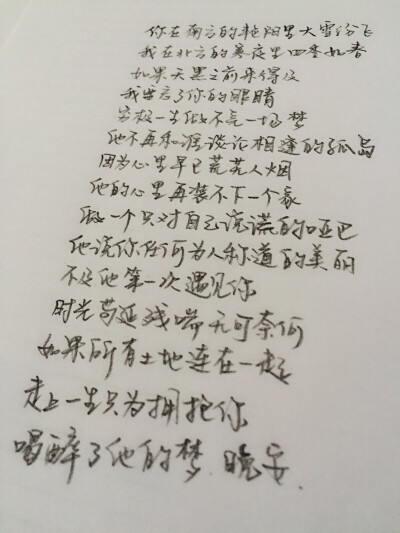 你在南方的艳阳里大雪纷飞
我在北方的寒夜里四季如春
如果天黑之前来得及
我要忘了你的眼睛
穷极一生做不完一场梦
他不再和谁谈论相逢的孤岛
因为心里早已荒芜人烟
他的心里再装不下一个家
做一个只对自己说谎的哑巴
他说你任何为人称道的美丽
不及他第一次遇见你
时光苟延残喘无可奈何
如果所有土地连在一起
走上一生只为拥抱你
喝醉了他的梦.晚安.